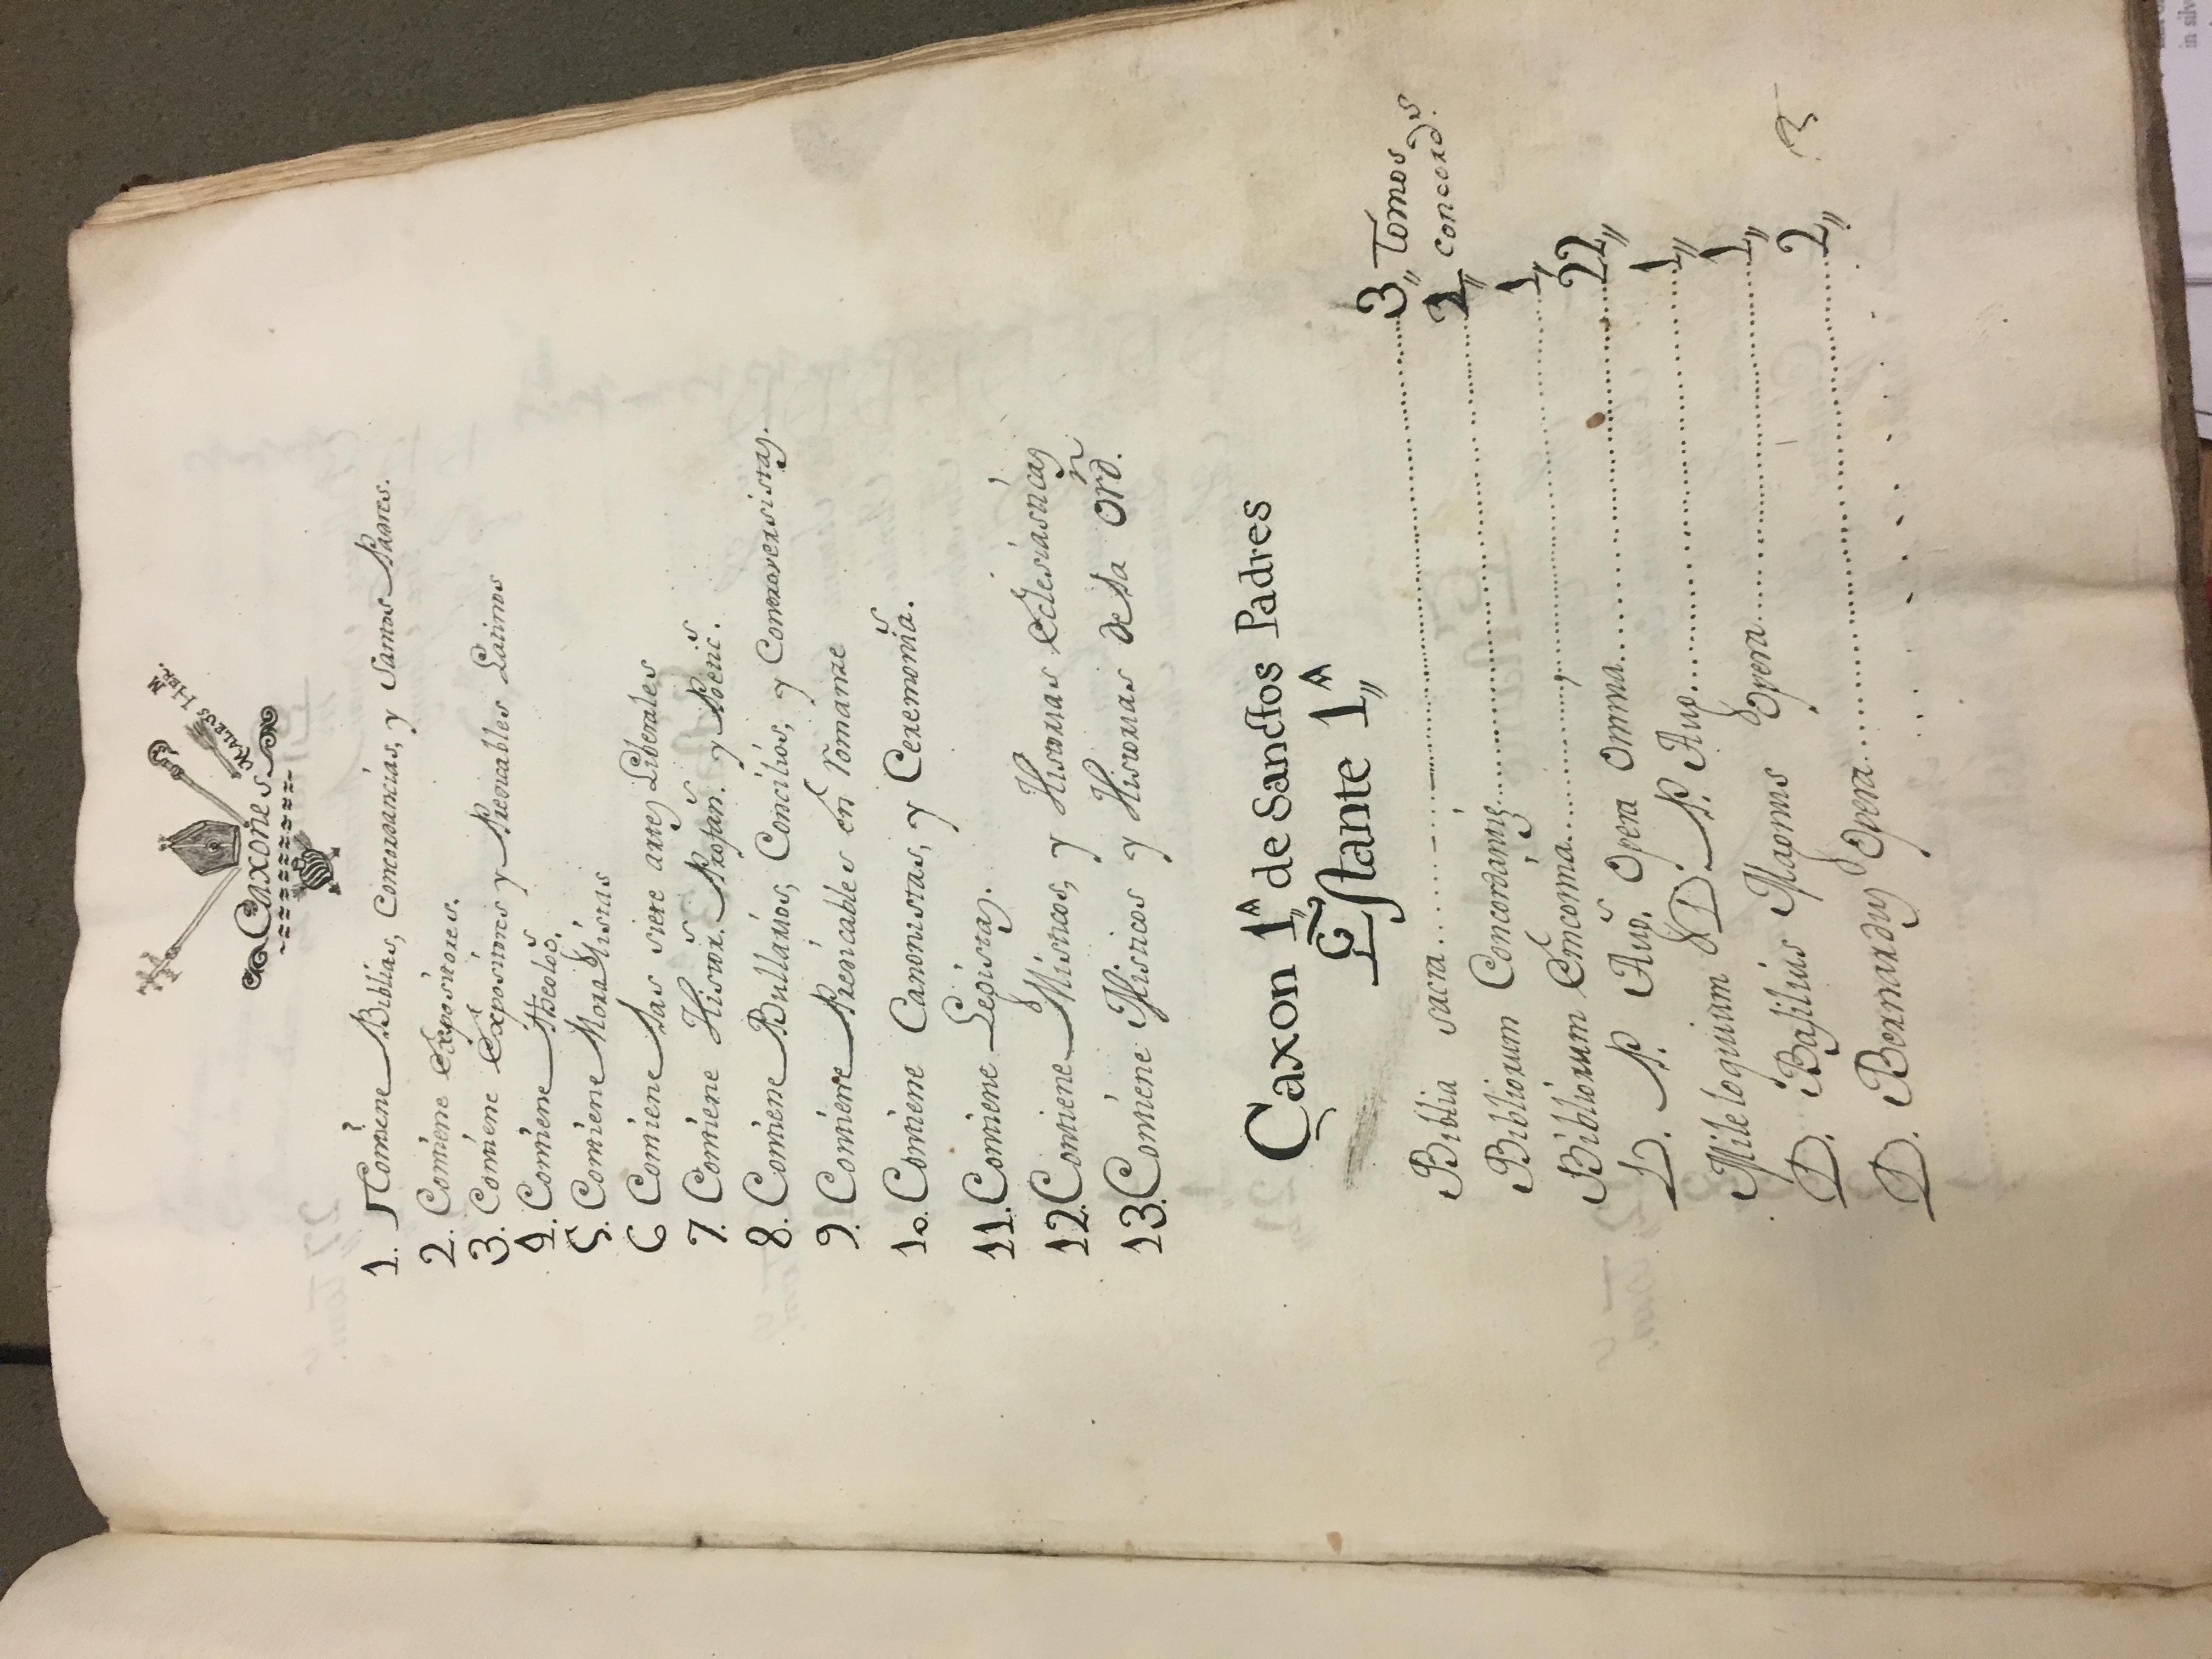 MALEUS HER.M
Caxones
1. Contiene Biblias, Concordancias, y Santos Padres.
2. Contiene Expositores.
3. Contiene Expositores y Predicables Latinos
4. Contiene Theolog.s
5. Contiene Moralistas
6 Contiene las siete artes Liberales
7. Contiene Histor.s Profan.s y Poetic.s
8. Contiene Bullarios, Concilios, y Controversistas.
9. Contiene Predicables en romanze
10. Contiene Canonistas, y Ceremonia.s
11. Contiene Legistas.
12. Contiene Misticos, y Historias Eclesiasticas
13. Contiene Misticos y Historias de la Ord.n
Caxon 1.A de Sanctos Padres
Estante 1A,,
Biblia sacra 3,, Tomos
Bibliorum Concordantię 2,, concord.s
Bibliorum Encomia 1,,
D. P. Aug.s Opera Omnia 22,,
Mileloquium D. P. Aug. 1,,
D. Basilius Magnus Opera 1,,
D. Bernardus Opera 2,,